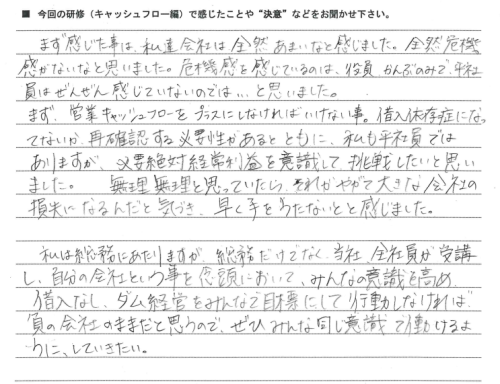 ■ 今回の研修（キャッシュフロー編）で感じたことや“決意”などをお聞かせ下さい。
まず感じた事は、私達会社は全然あまいなと感じました。全然危機
感がないなと思いました。危機感を感じているのは、役員、かんぶのみで、平社
員はぜんぜん感じていないのでは…と思いました。
まず、営業キャッシュフローをプラスにしなければいけない事。借入依存症になっ
てないか、再確認する必要性があるとともに、私も平社員では
ありますが、必要絶対経常利益を意識して挑戦したいと思い
ました。 無理無理と思っていたら、それがやがて大きな会社の
損失になるんだと気づき、早と手をうたないとと感じました。
私は総務にあたりますが、総務だけでなく、当社、全社員が受講
し、自分の会社という事を念頭において、みんなの意識を高め、
借入なし、ダム経営をみんなで目標にして行動しなければ、
負の会社のままだと思うので、ぜひみんな同じ意識で働けるよ
うに、していきたい。